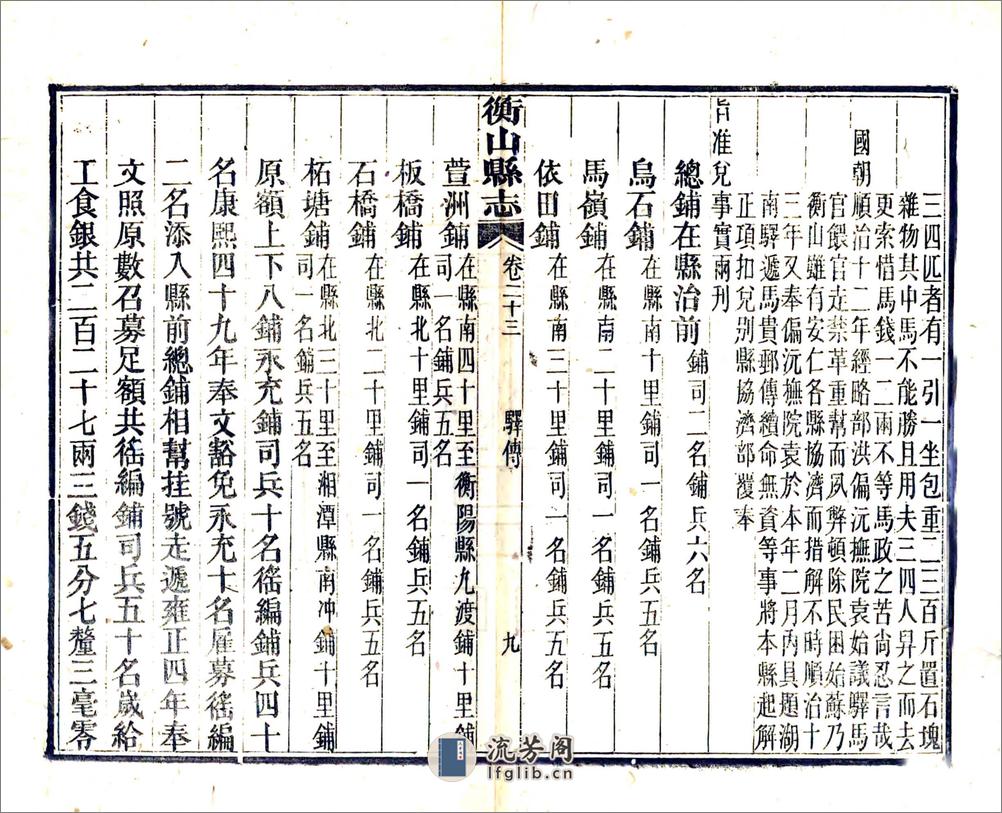 三四匹者有一引一坐包重二三百斤置石塊
雜物其中馬不能勝且用夫三四人舁之而去
更索惜馬錢一二兩不等馬政之苦尚忍言哉
國朝順治十二年經略部洪偏沅撫院袁始議驛馬
官餵官走禁革重幫而夙弊頓除民困始蘇乃
衡山雖有安仁各縣協濟而措解不時順治十
三年又奉偏沅撫院袁於本年二月內具題湖
南驛遞馬貴郵傳續命無資等事將本縣起解
正項扣兌別縣協濟部覆奉
旨准兌事實兩刊
總鋪在縣治前 鋪司二名鋪兵六名
烏石鋪 在縣南十里鋪司一名鋪兵五名
馬嶺鋪 在縣南二十里鋪司一名鋪兵五名
依田鋪 在縣南三十里鋪司一名鋪兵五名
衡山縣志 卷二十三 驛傳 九
萱洲鋪 在縣南四十里至衡陽縣九渡鋪十里鋪
司一名鋪兵五名
板橋鋪 在縣北十里鋪司一名鋪兵五名
石橋鋪 在縣北二十里鋪司一名鋪兵五名
柘塘鋪 在縣北三十里至湘潭縣南冲鋪十里鋪
司一名鋪兵五名
原額上下八鋪永充鋪司兵十名徭編鋪兵四十
名康熙四十九年奉文豁免永充十名雇募徭編
二名添入縣前總鋪相幫挂號走遞雍正四年奉
文照原數召募足額共徭編鋪司兵五十名歲給
工食銀共二百二十七兩三錢五分七釐三毫零
流芳阁
lfglib.cn